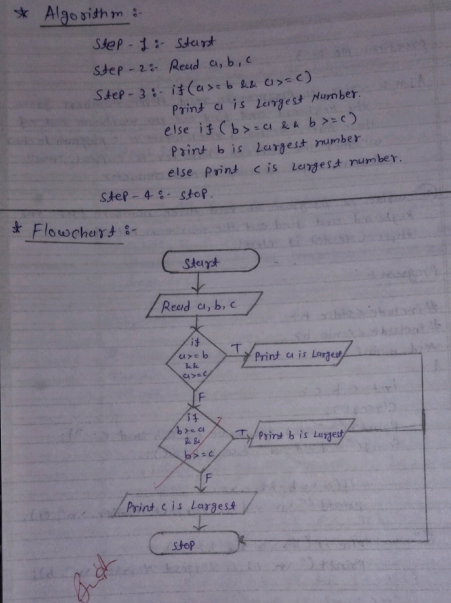 * Algorithm :-
Step - 1 :- Start
Step - 2 :- Read a, b, c
Step - 3 :- if (a >= b && a >= c)
Print a is Largest Number.
else if (b >= a && b >= c)
Print b is Largest number
else print c is Largest number.
Step - 4 :- Stop.
* Flowchart :-
Start
Read a, b, c
if
a >= b
&&
a >= c
T
Print a is Largest
F
if
b >= a
&&
b >= c
T
Print b is Largest
F
Print c is Largest
Stop